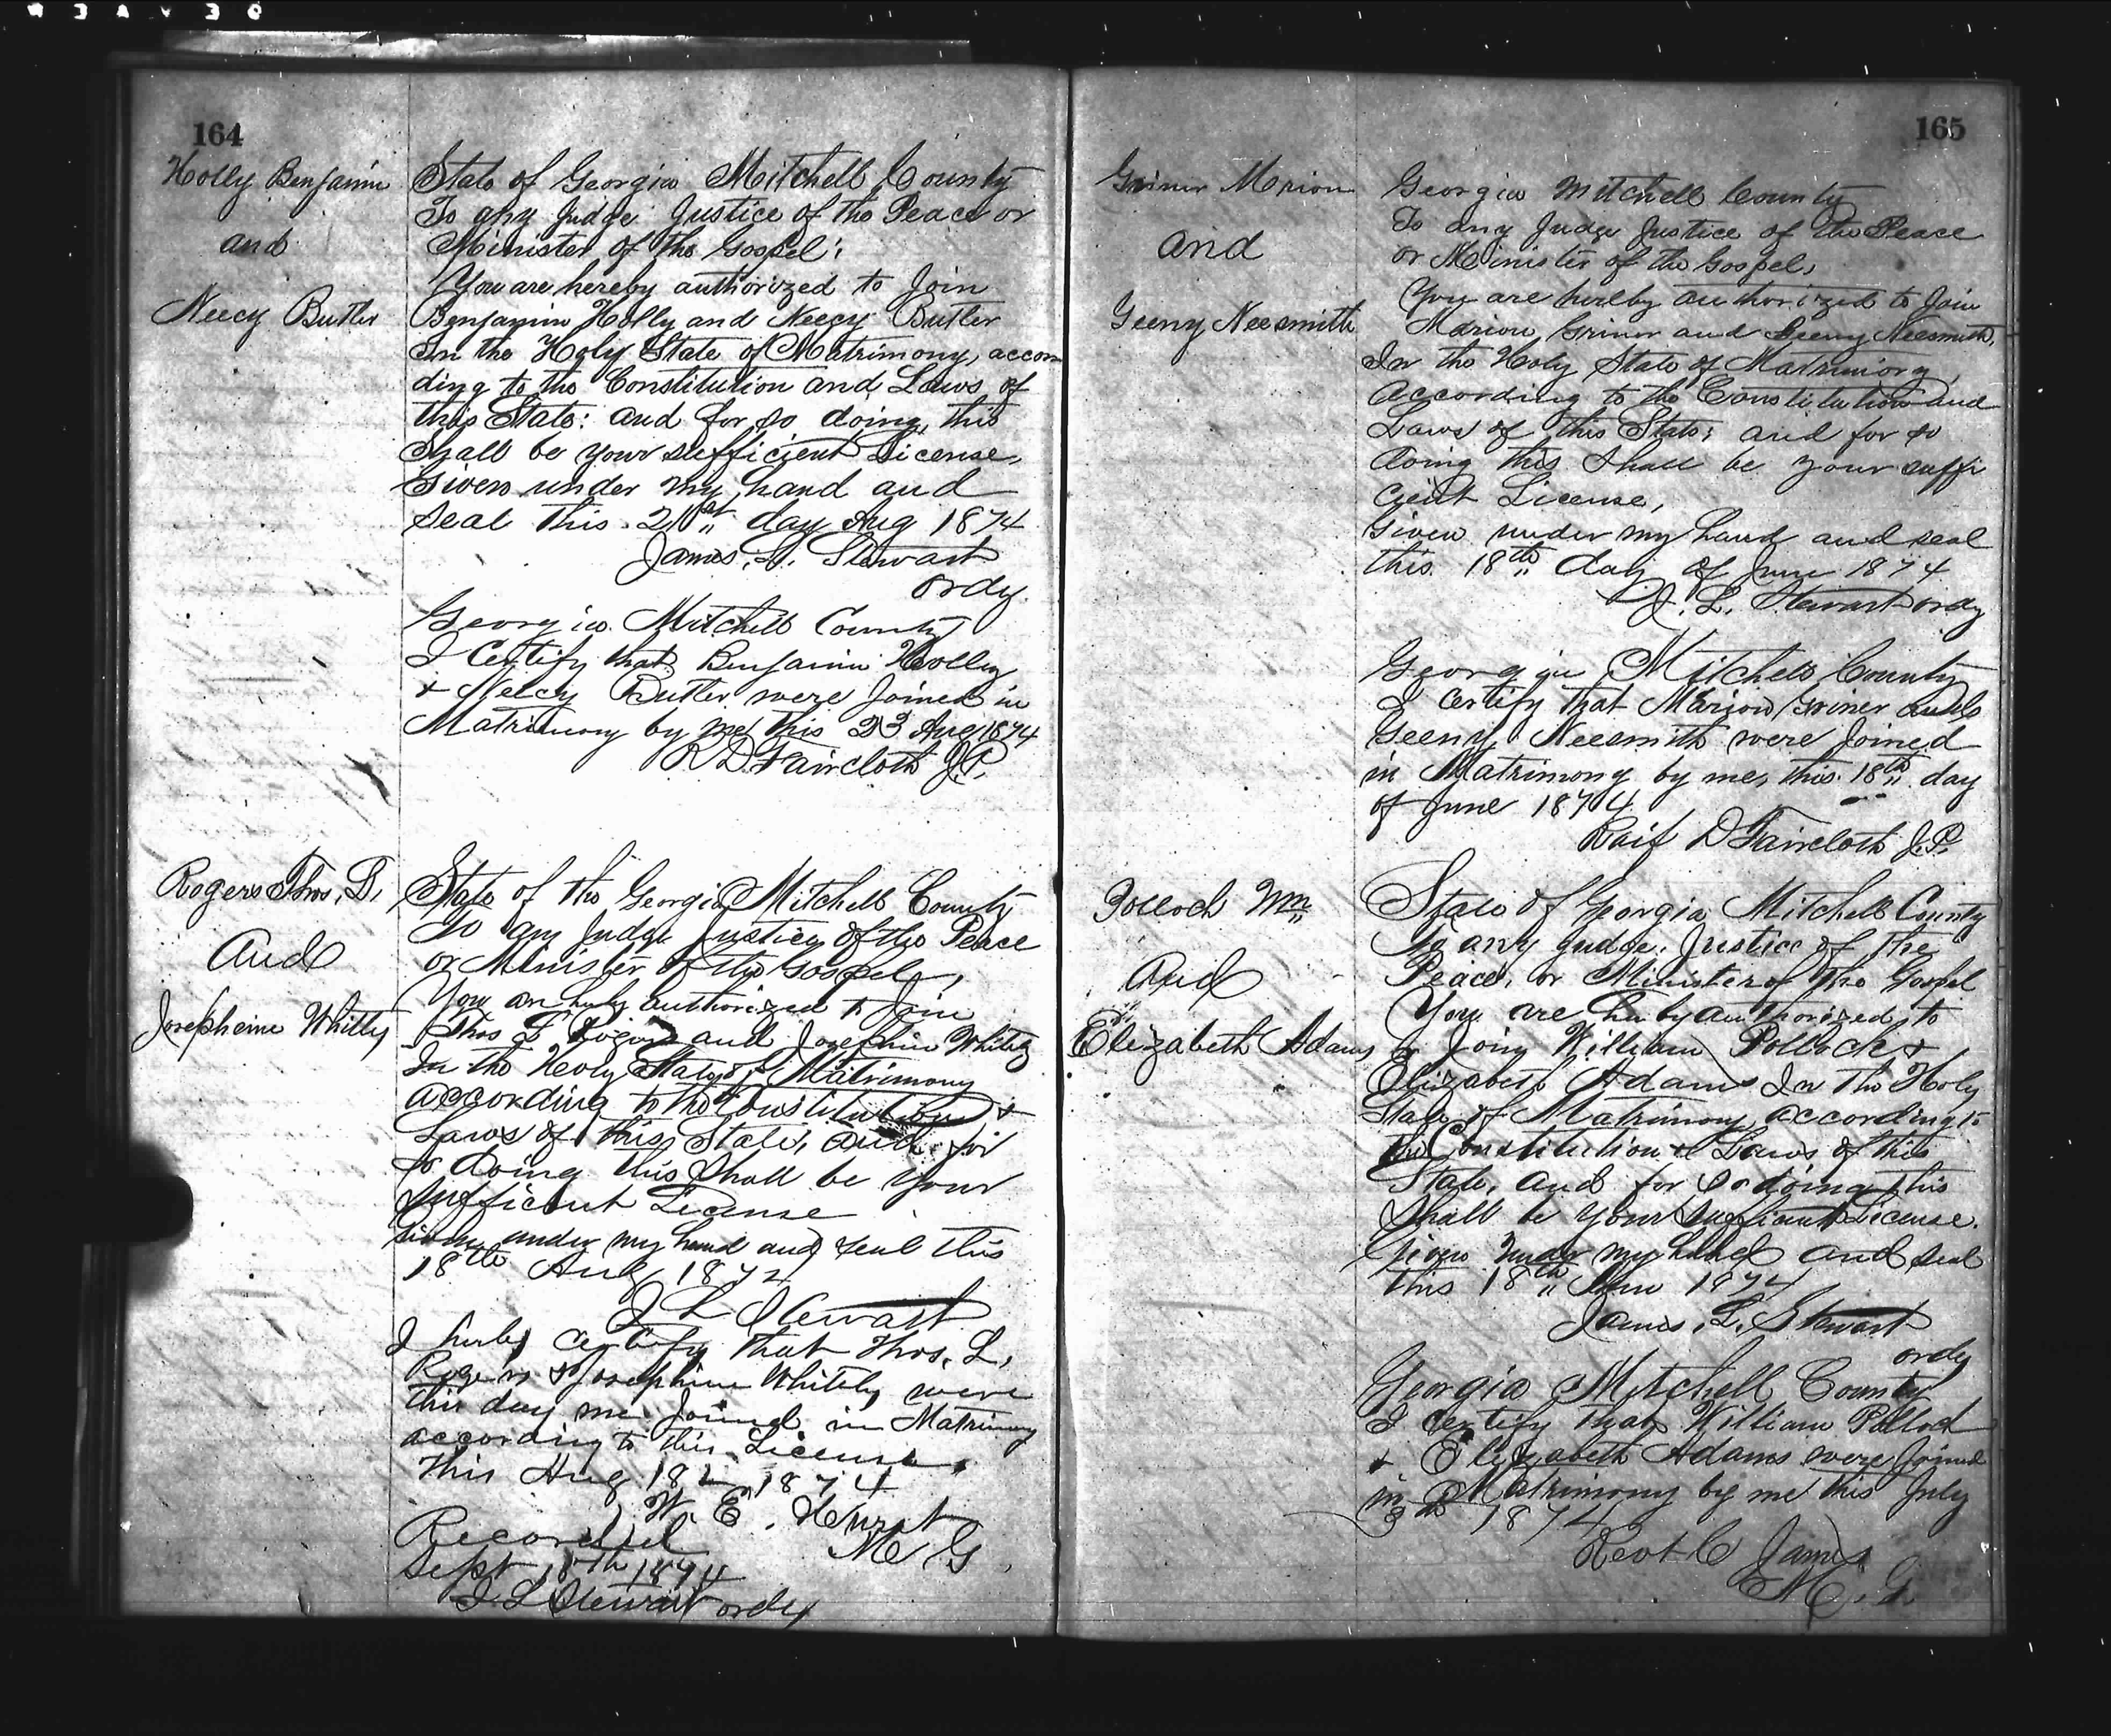 164
Holly Benjamin
and
Neecy Butler
State of Georgia Mitchell County
To any Judge Justice of the Peace or
Minister of the Gospel;
You are hereby authorized to Join
Benjamin Holly and Neecy Butler
In the Holy State of Matrimony, accor
ding to the Constitution and Laws of
this State: and for so doing, this
shall be your sufficient License,
Given under my hand and
seal this 21st day Aug 1874
James. L. Stewart
ordy
Georgia. Mitchell County
I Certify that Benjamin Holly
& Neecy Butler were Joined in
Matrimony by me this 23 Aug 1874
R D Faircloth J.P.
Rogers Thos,
And
Josepheine Whitly
State of the Georgia Mitchell County
To any Judge Justice of the Peace
or Minister of the Gospel,
You are hereby authorized to Join
Thos Rogers and Josephine Whitely
In the Holy State of Matrimony
according to the Constitution &
Laws of this State, and for
so doing this Shall be your
sufficient License
Given under my hand and seal this
18th Aug 1874
J L Stewart
I hereby certify that Thos. L,
Rogers & Josephine Whitely were
this day me Joined in Matrimony
according to this License.
This Aug 18 1874
W. E. Hurst
M G
Recorded
Sept 18th 1874
J L Stewart ordy
165
Griner Marion
and
Geeny Neesmith
Georgia Mitchell County
To any Judge Justice of the Peace
or Minister of the Gospel,
You are hereby authorized to Join
Marion Griner and Geeny Neesmith,
In the Holy State of Matrimony,
according to the Constitution and
Laws of this State; and for so
doing this Shall be your suffi
cient License,
Given under my hand and seal
this 18th day of June 1874
J. L. Stewart ordy
Georgia Mitchell County
I certify that Marion Griner and
Geeny Neesmith were Joined
in Matrimony by me, this 18th day
of June 1874
Raif D Faircloth J.P.
Polloch Wm
And
Elizabeth Adams
State of Georgia Mitchell County
To any Judge. Justice of the
Peace, or Minister of the Gospel
You are hereby authorized to
Join William Pollock &
Elizabeth Adams In the Holy
State of Matrimony according to
the Constitution & Laws of this
State, and for so doing This
Shall be your Sufficient License.
Given under my hand and seal
this 18th 1874
James. L. Stewart
ordy
Georgia Mitchell County
I certify that William Pollock
& Elizabeth Adams were Joined
in Matrimony by me this July
1874
C James
M. G.